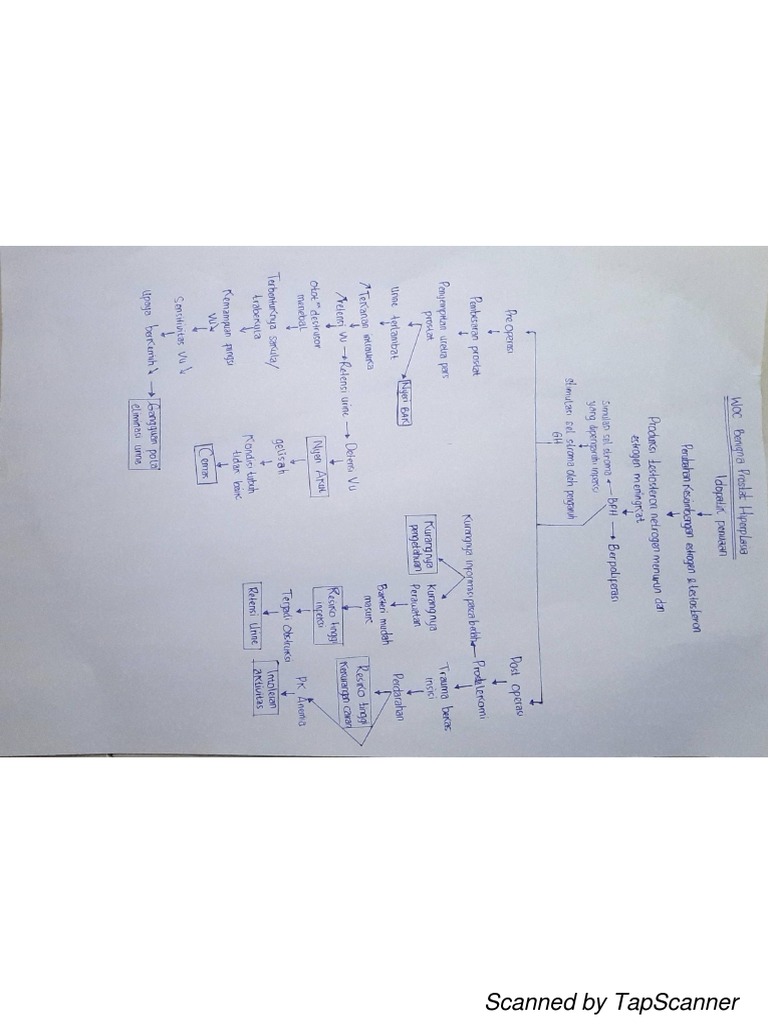 WOC Benigna Prostat Hiperplasia
Idopatik penuaan
Perubahan Keseimbangan estrogen & testosteron
Produksi testosteron netrogen menurun dan
estrogen meningkat
BPH
Berpoliperasi
Simulasi sel stroma
yang dipengaruhi inpensi
stimulasi sel stroma oleh pengaruh
GH
Pre Operasi
Pembesaran prostat
Penyempitan uretra pars
prostat
Urine terhambat
Nyeri BAK
↗ Tekanan intravesika
↗ retensi VU
Retensi urine
Distensi VU
Otot" destrusor
menebal
Terbentuknya sakula/
trabekula
Kemampuan fungsi
VU↓
Sensitivitas VU ↓
Upaya berkemih ↓
Gangguan pola
eliminasi urine
Nyeri Akut
gelisah
Kondisi tubuh
tidak baik
Cemas
Post Operasi
Prostatektomi
Kurangnya informasi pasca bedah
Kurangnya
pengetahuan
Kurangnya
Perawatan
Bakteri mudah
masuk
Resiko tinggi
inpensi
Terjadi Obstruksi
Retensi Urine
Trauma bekas
insisi
Perdarahan
Resiko tinggi
kekurangan cairan
PK Anemia
Intoleran
aktivitas
Scanned by TapScanner